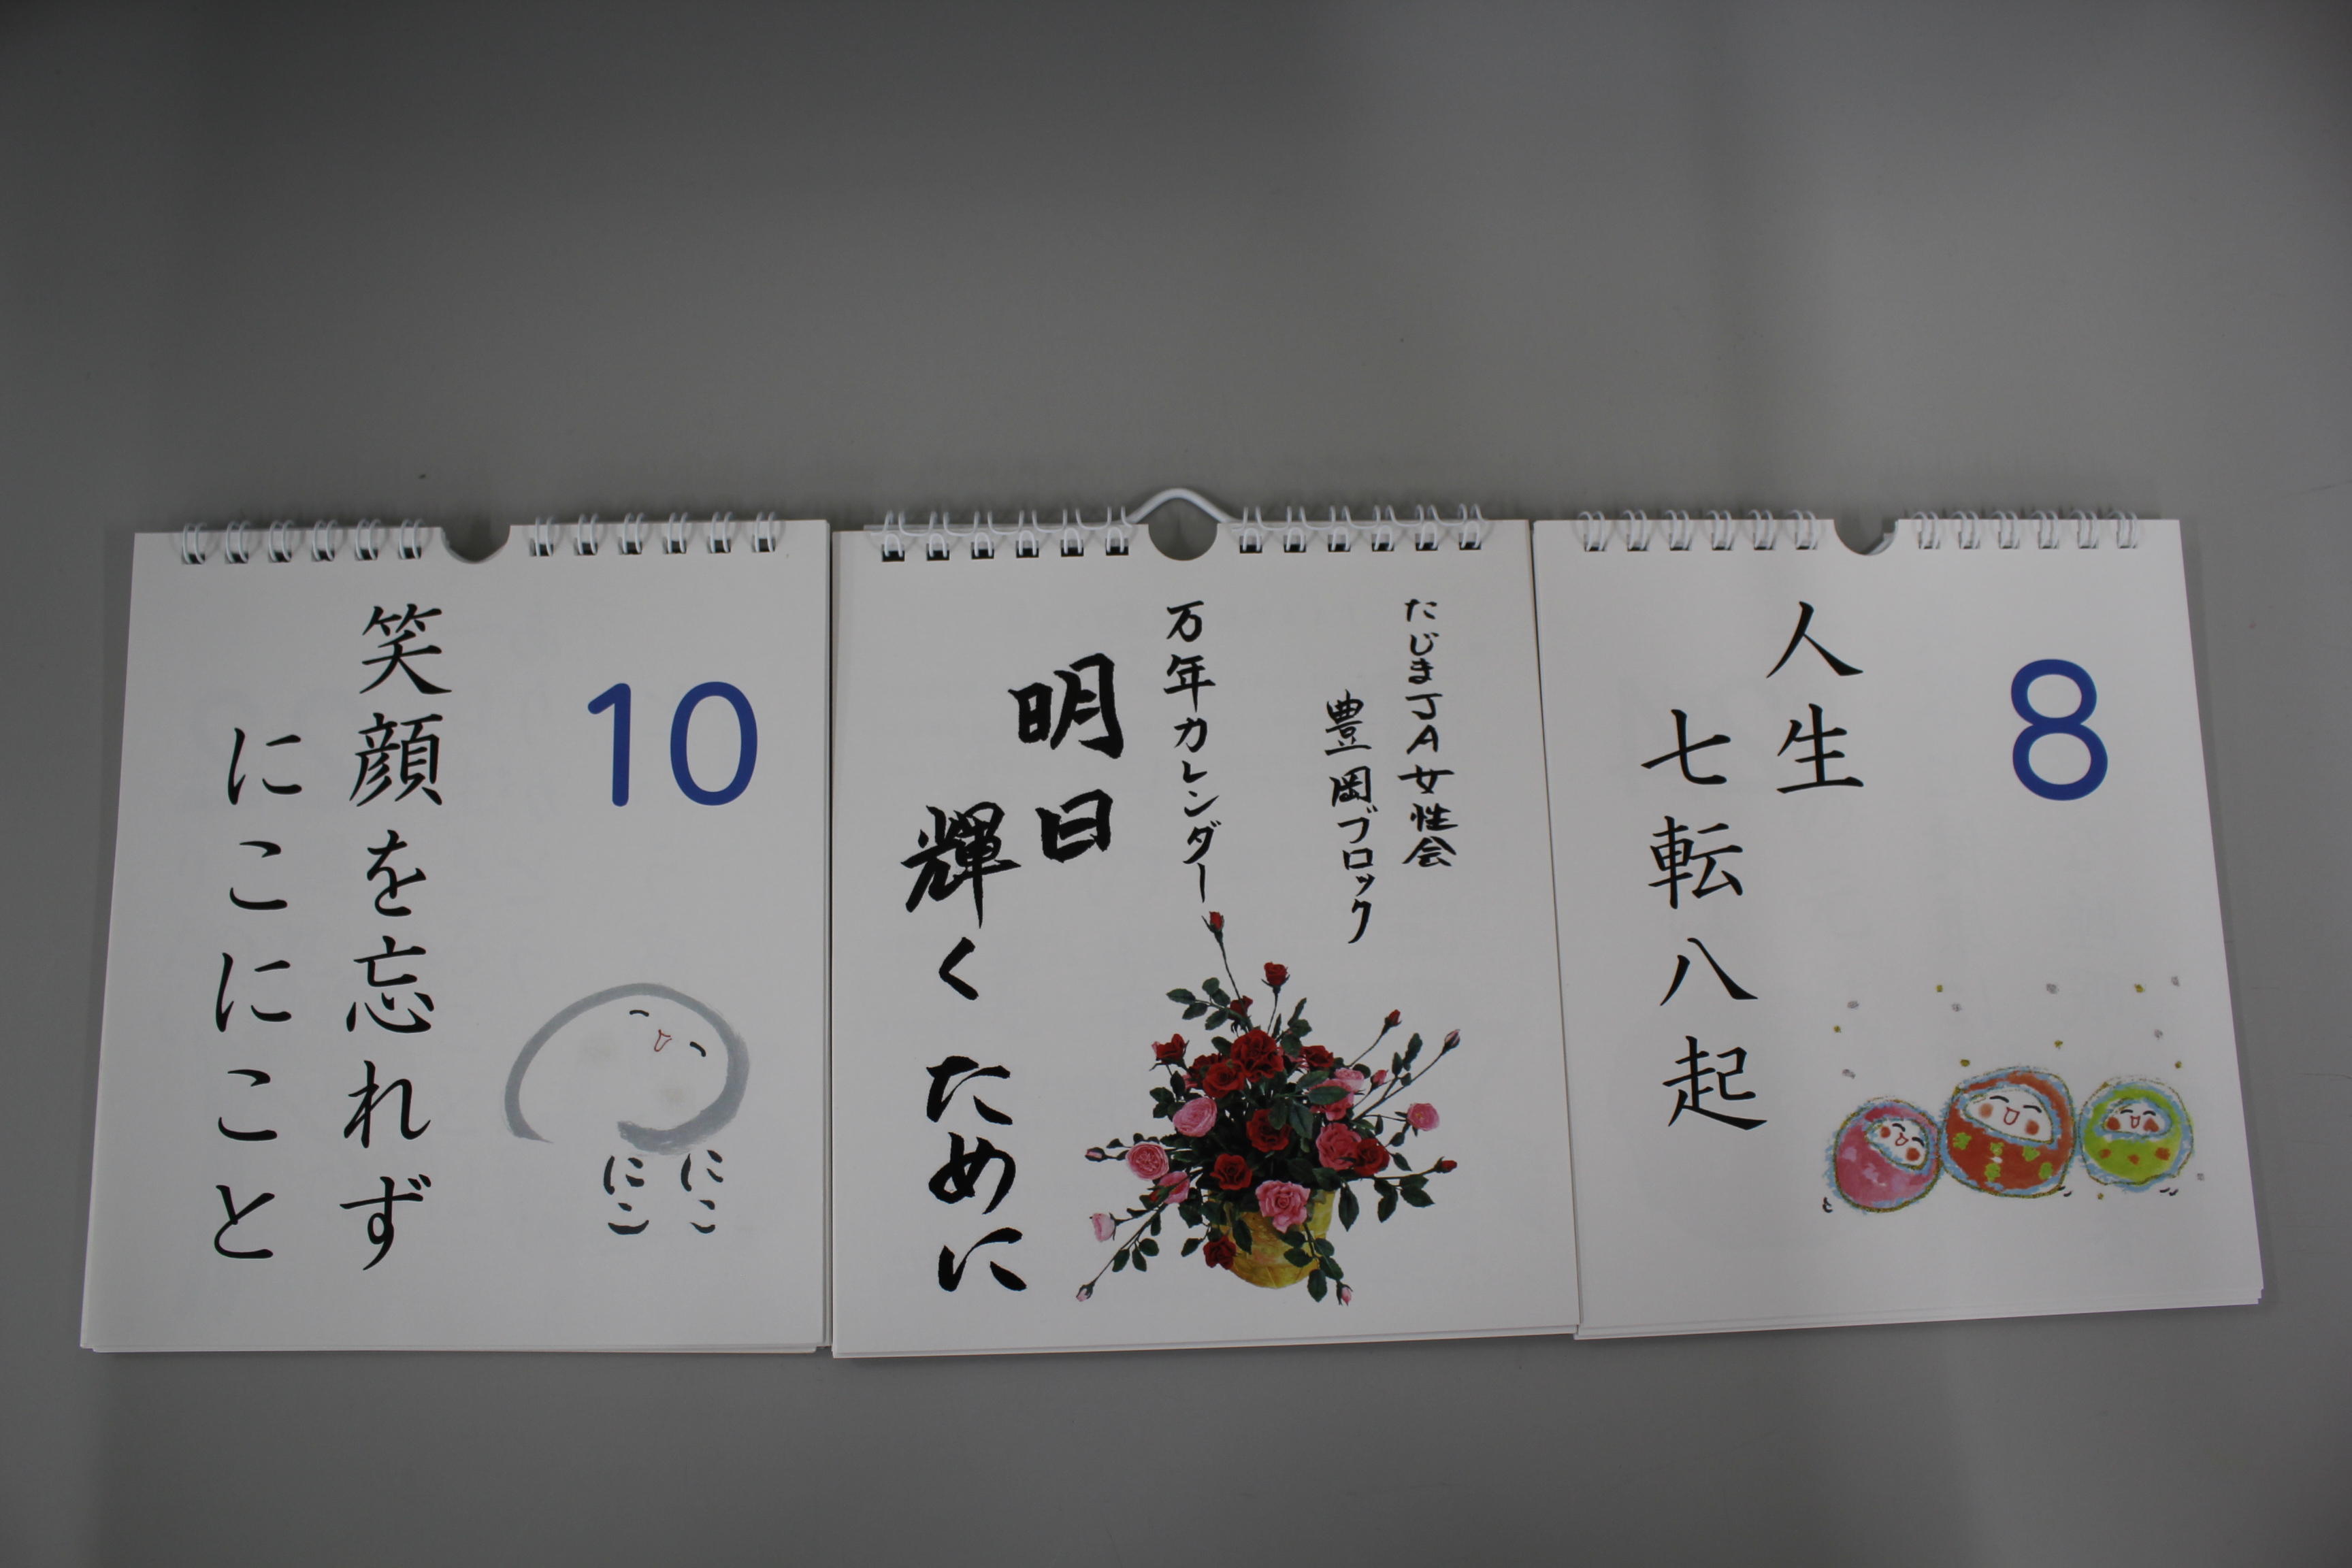 10
笑顔を忘れず
にこにこと
にこ
にこ
たじまJA女性会
豊岡ブロック
万年カレンダー
明日
輝くために
8
人生
七転八起